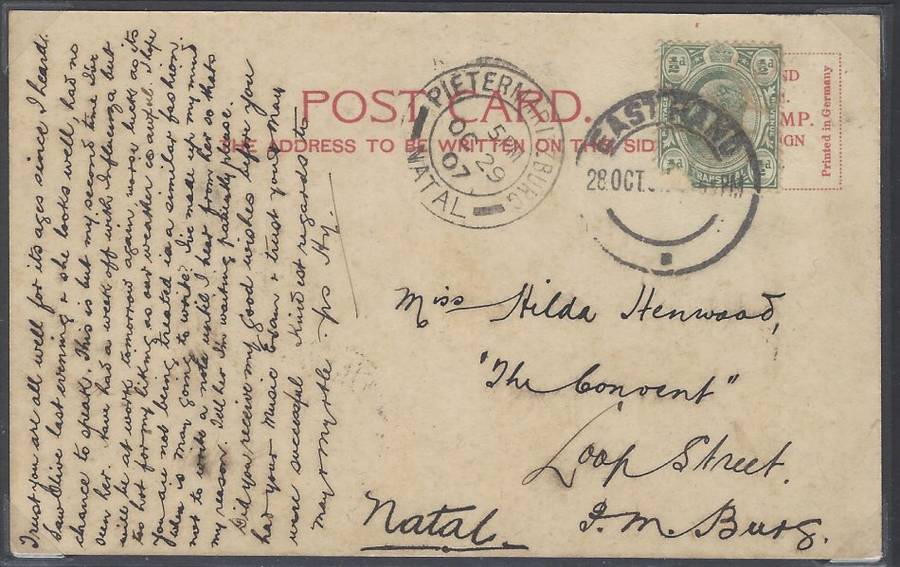 Trust you are all well for its ages since I heard.
Saw Olive last evening & she looks well, had no
chance to speak. This is but my second time I've
seen her. have had a week off with Influenza but
will be at work tomorrow again, worse luck as its
too hot for my liking as our weather is awful. I hope
you are not being treated in a similar fashion.
When is May going to write? I've made up my mind
not to write a note until I hear from her so thats
my reason. Tell her I'm waiting patiently please.
Did you receive my good wishes before you
had your Music Exam & trust you & May
were successful Kindest regards to
May
yrs Hy.
POST CARD.
THE ADDRESS TO BE WRITTEN ON THIS SID
PIETERMARITZBURG
5 PM
OC 29
07
NATAL
EAST RAND
28 OCT
PM
½d
½d
POSTAGE
REVENUE
½d
TRANSVAAL
ND
MP.
IGN
Printed in Germany
Miss Hilda Henwood,
"The Convent"
Loop Street.
P. M. Burg.
Natal.